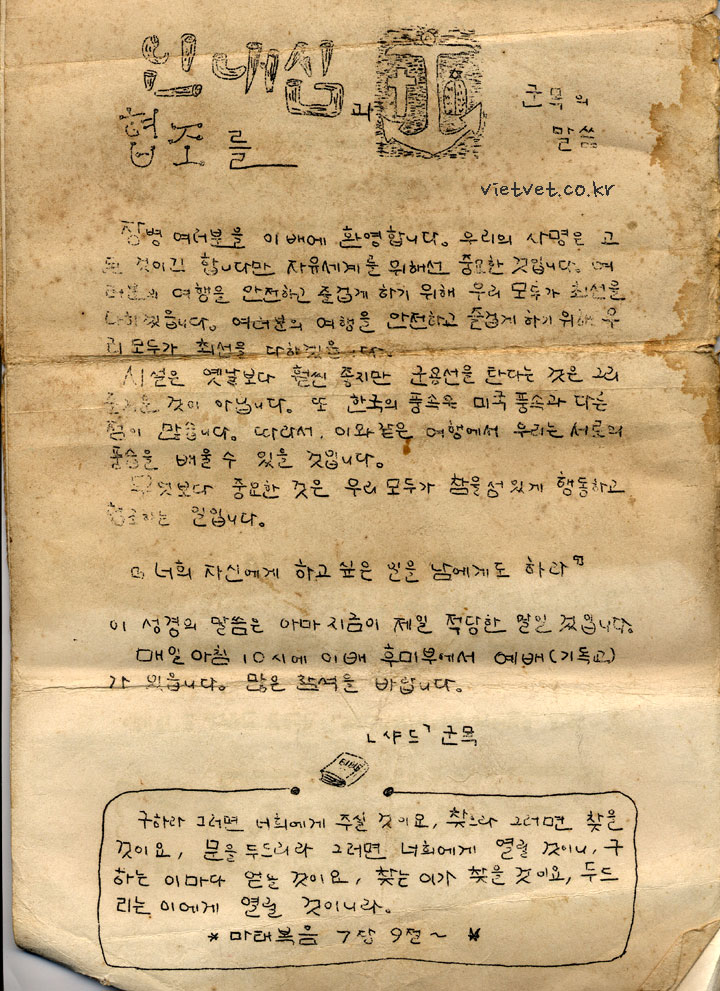 인내심과
협조를
군목의
말씀
vietvet.co.kr
장병 여러분을 이배에 환영합니다. 우리의 사명은 고
된 것이긴 합니다만 자유세계를 위해선 중요한 것입니다. 여
러분의 여행을 안전하고 즐겁게 하기 위해 우리 모두가 최선을
다하겠읍니다. 여러분의 여행을 안전하고 즐겁게 하기 위해 우
리 모두가 최선을 다하겠읍니다.
시설은 옛날보다 훨씬 좋지만 군용선을 탄다는 것은 그리
즐거운 것이 아닙니다. 또 한국의 풍속은 미국 풍속과 다른
점이 많습니다. 따라서, 이와같은 여행에서 우리는 서로의
풍습을 배울 수 있을 것입니다.
무엇보다 중요한 것은 우리 모두가 참을성 있게 행동하고
협조하는 일입니다.
"너희 자신에게 하고 싶은 일을 남에게도 하라"
이 성경의 말씀은 아마 지금이 제일 적당한 말일 것입니다.
매일 아침 10시에 이배 후미부에서 예배(기독교)
가 있읍니다. 많은 참석을 바랍니다.
「샤드」 군목
구하라 그러면 너희에게 주실 것이요, 찾으라 그러면 찾을
것이요, 문을 두드리라 그러면 너희에게 열릴 것이니, 구
하는 이마다 얻을 것이요, 찾는 이가 찾을 것이요, 두드
리는 이에게 열릴 것이니라.
* 마태복음 7장 9절~ *